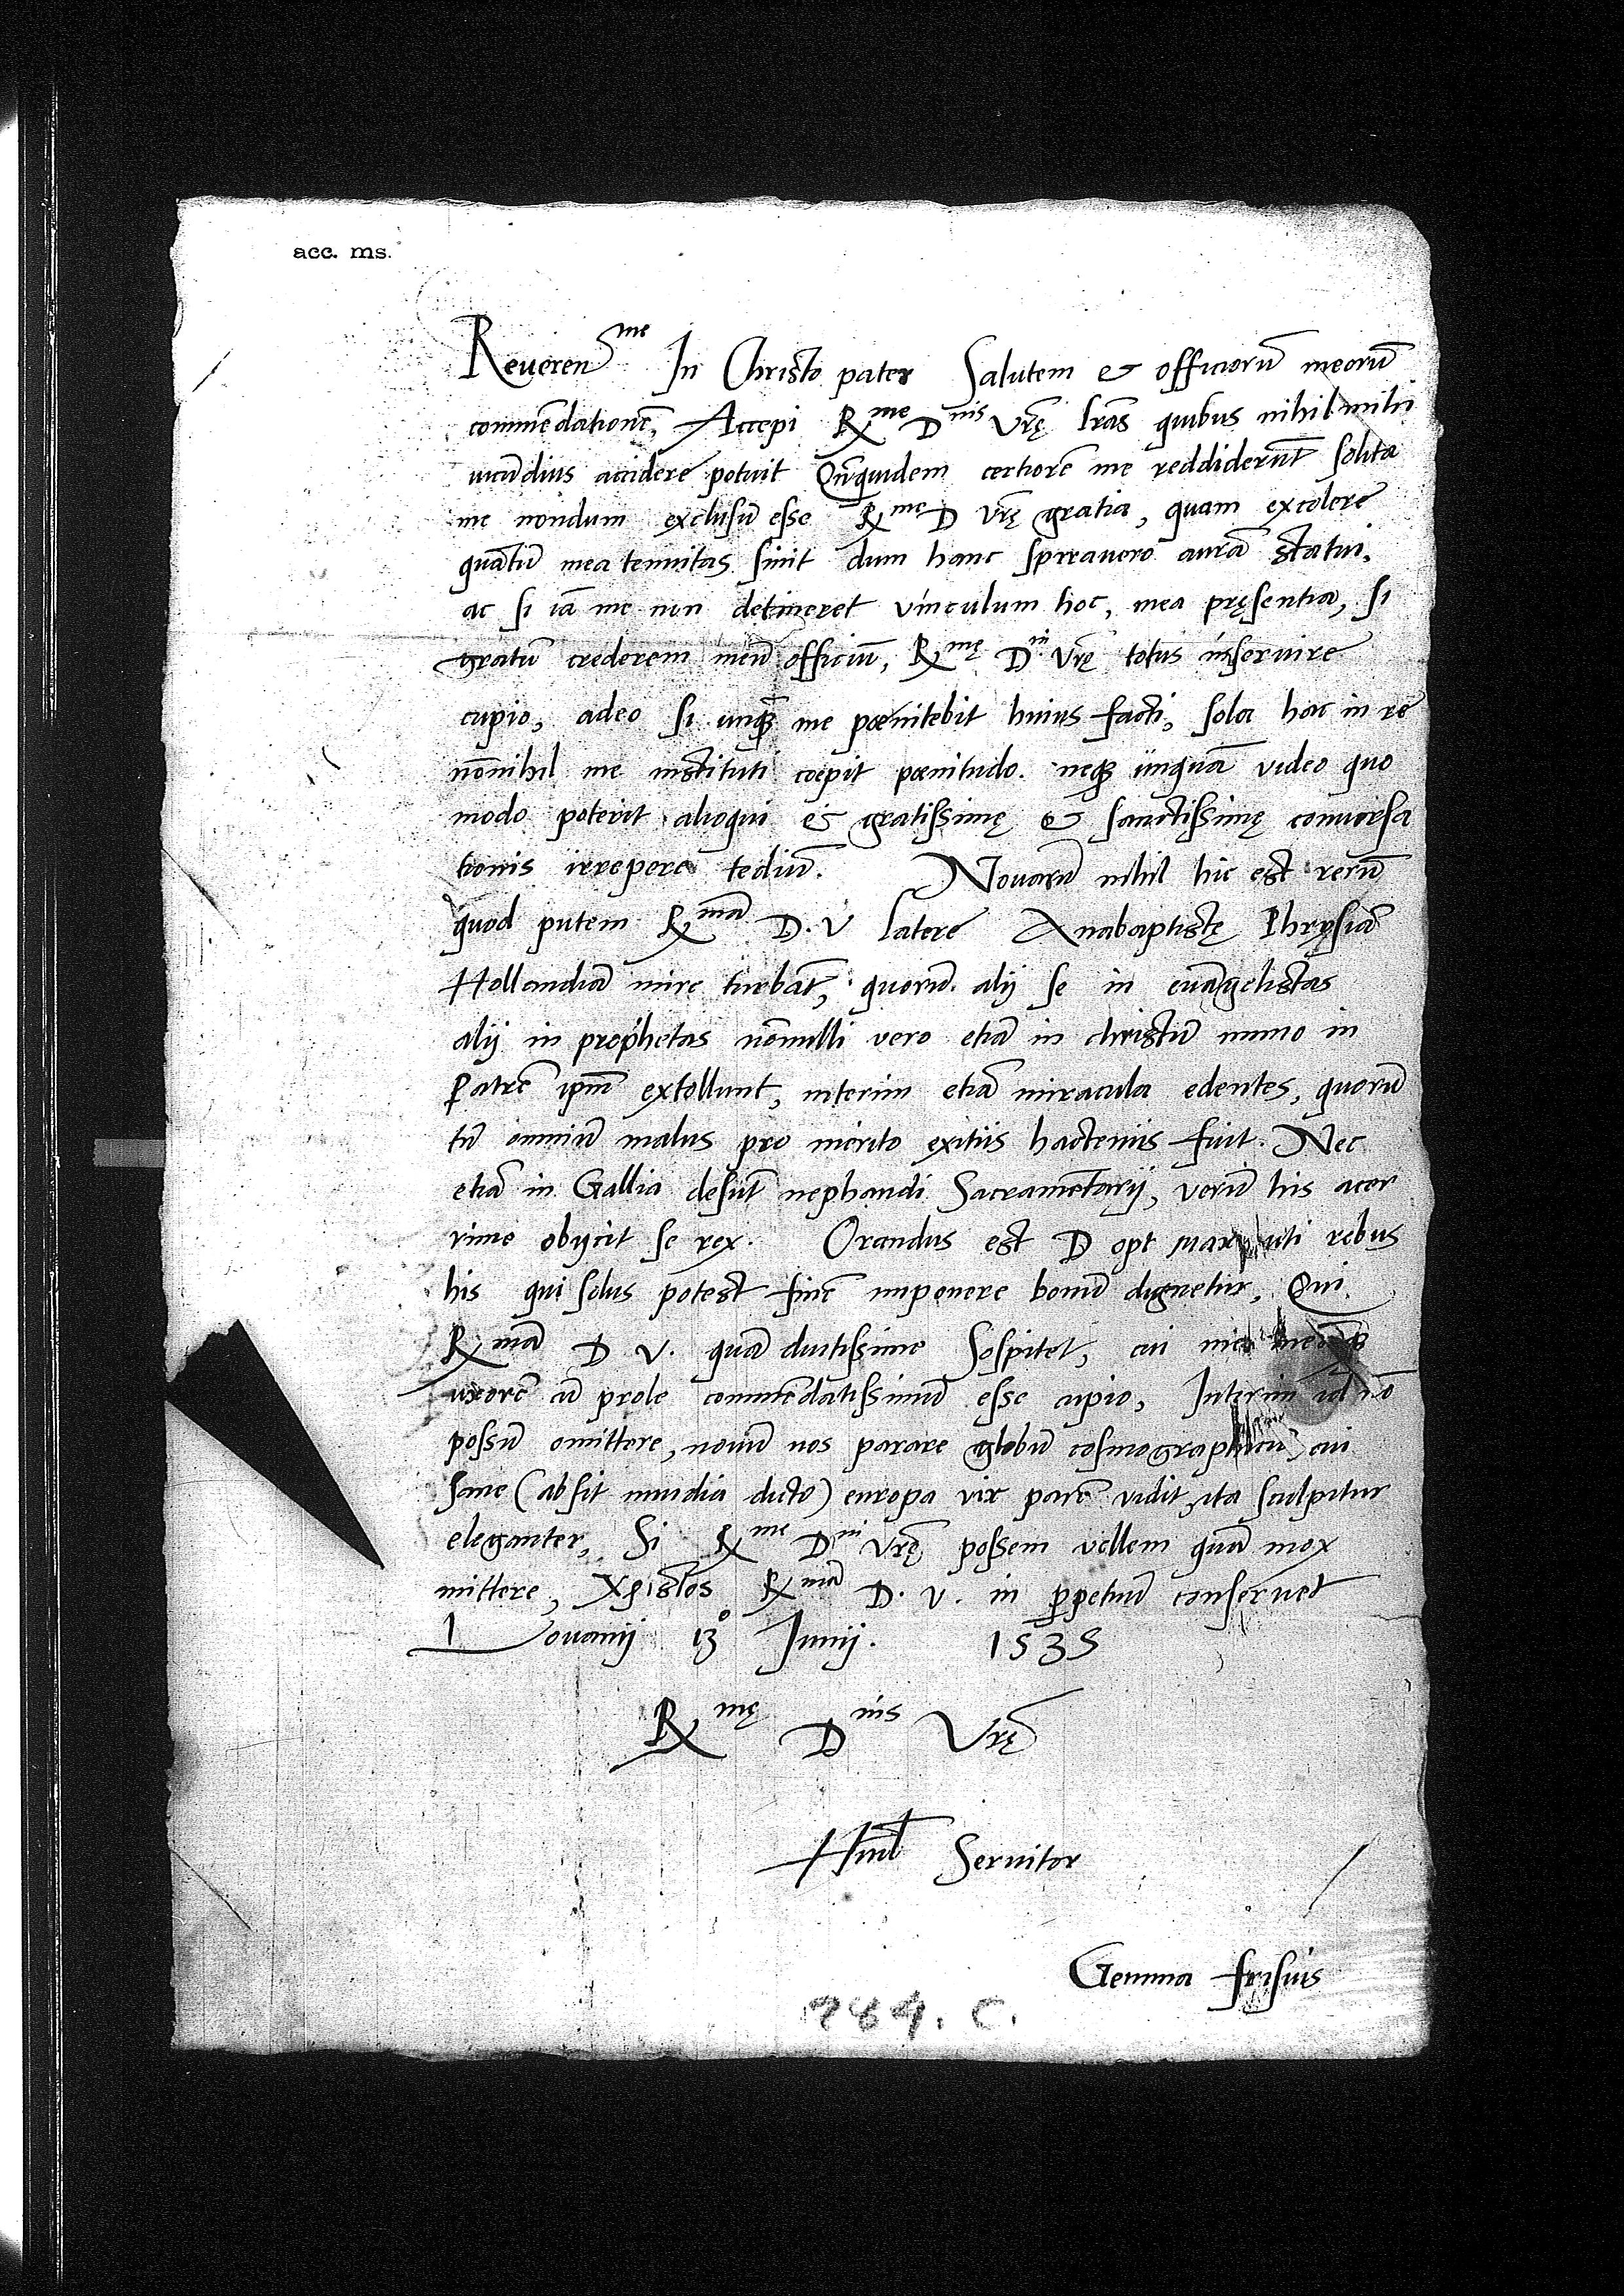 acc. ms.
Reveren^me In Christo pater Salutem & officiorū meorū
commēdationē, Accepi R^me D^nis Vrę lrās quibus nihil mihi
iucūdius accidere potuit Qn̄quidem certiorē me reddiderūt solita
me nondum exclusū esse R^me D Vrę gratia, quam excolere
quātū mea tenuitas sinit dum hanc spiravero aurā statui,
ac si iā me non detineret vinculum hoc, mea pręsentia, si
gratū crederem meū officiū, R^mę D^ni Vrę totus inservire
cupio, adeo si unq̄ me pœnitebit huius facti, sola hac in re
nōnihil me instituti coepit pœnitudo. neq; unquā video quo
modo poterit alioqui & gratissimę & sanctissimę conversa
tionis irrepere tediū. Novarū nihil hic est rerū
quod putem R^mā D. V latere Anabaptistę Phrysiā
Hollandiā mire turbāt, quorū alij se in evāgelistas
alij in prophetas nōnulli vero etiā in christū immo in
Patrē ipm̄ extollunt, interim etiā miracula edentes, quorū
tū omniū malus pro merito exitus hactenus fuit. Nec
etiā in Gallia desūt nephandi Sacramētarij, verū his acer
rime obijcit se rex. Orandus est D opt max uti rebus
his qui solus potest finē imponere bonū dignetur, Qui
R^mā D V. quā diutissime sospitet, cui me meāq;
uxorē cū prole commēdatissimū esse cupio, Interim id nō
possū omittere, novū nos parare globū cosmographicū, cui
sane (absit invidia dicto) europa vix parē vidit, ita sculpitur
eleganter, Si R^me D^ni Vrę possem vellem quā mox
mittere, Xρistos R^mā D. V. in ꝑpetuū conservet
Lovanij 13° Junij. 1535
R^mę D^nis Vrę
Huml Servitor
Gemma frisius
284. C.